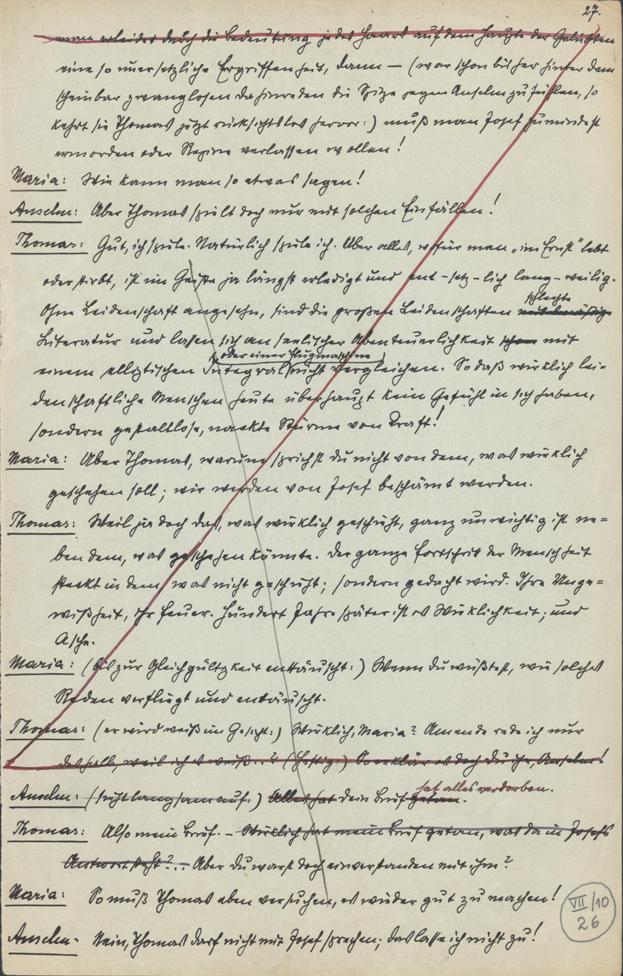 27.
man erleidet durch die Bedeutung jedes Haars auf dem Haupte der Geliebten
eine so unersetzliche Ergriffenheit, dann — (war schon bisher hinter dem
scheinbar zwanglosen dahinreden die Spitze gegen Anselm zu fühlen, so
kehrt sie Thomas jetzt rücksichtslos hervor:) muß man Josef zumindest
ermorden oder Regine verlassen wollen!
Maria: Wie kann man so etwas sagen!
Anselm: Aber Thomas spielt doch nur mit solchen Einfällen!
Thomas: Gut, ich spiele. Natürlich spiele ich. Aber alles, wofür man „im Ernst" lebt
oder stirbt, ist im Geiste ja längst erledigt und ent-setz-lich lang-weilig.
schlechte
Ohne Leidenschaft angesehn, sind die großen Leidenschaften
Literatur und lassen sich an seelischer Abenteuerlichkeit schon mit
oder einer Flugmaschine
einem elliptischen Integral nicht vergleichen. Sodaß wirklich lei-
denschaftliche Menschen heute überhaupt kein Gefühl in sich haben,
sondern gestaltlose, nackte Stürme von Kraft!
Maria: Aber Thomas, warum sprichst du nicht von dem, was wirklich
geschehen soll; wir werden von Josef beschämt werden.
Thomas: Weil ja doch das, was wirklich geschieht, ganz unwichtig ist ne=
ben dem, was geschehen könnte. Der ganze Fortschritt der Menschheit
steckt in dem, was nicht geschieht; sondern gedacht wird. Ihre Unge=
wißheit, ihr Feuer. Hundert Jahre später ist es Wirklichkeit; und
Asche.
Maria: (bis zur Gleichgültigkeit enttäuscht:) Wenn du wüßtest, wie solches
Reden verfliegt und enttäuscht.
Thomas: (er wird weiß im Gesicht:) Wirklich, Maria? Am ende rede ich nur
deshalb, weil ich es weiß..! (Heftig:) So erklär es doch du ihr, Anselm!
hat alles verdorben.
Anselm: (steht langsam auf:) Alles hat dein Brief getan.
Thomas: Also mein Brief. – Wirklich hat mein Brief getan, was da in Josefs
Antwort steht?... Aber du warst doch einverstanden mit ihm?
Maria: So muß Thomas eben versuchen, es wieder gut zu machen!
Anselm: Nein, Thomas darf nicht mit Josef sprechen; das lasse ich nicht zu!
VII/10
26